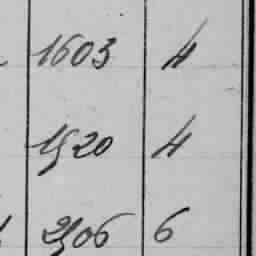 1603 4
1520 4
2506 6